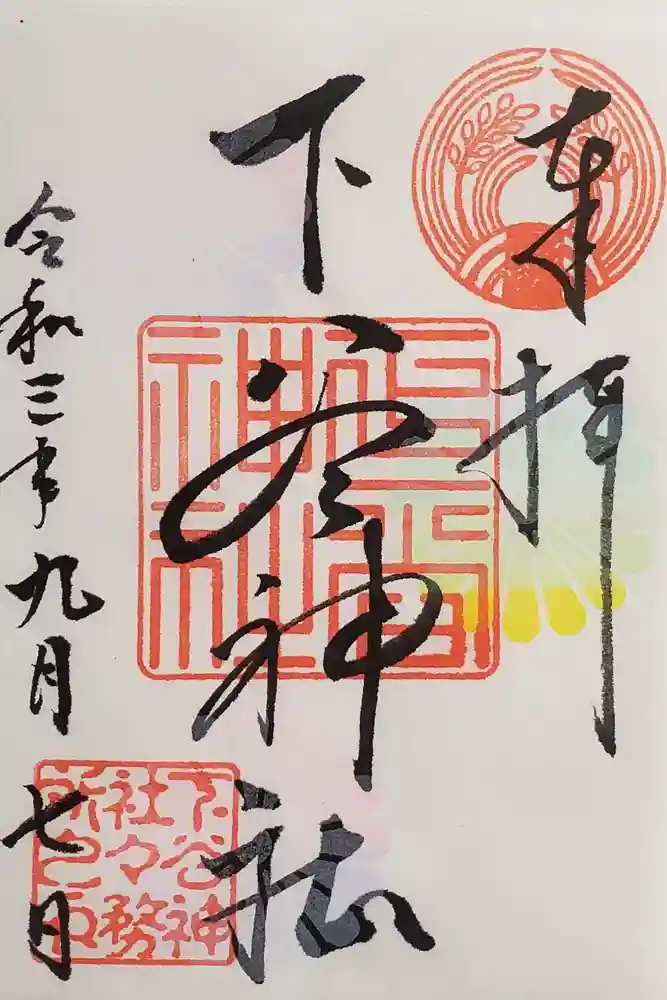 奉拝
下谷神社
令和三年九月七日
下谷神
社々務
所之印